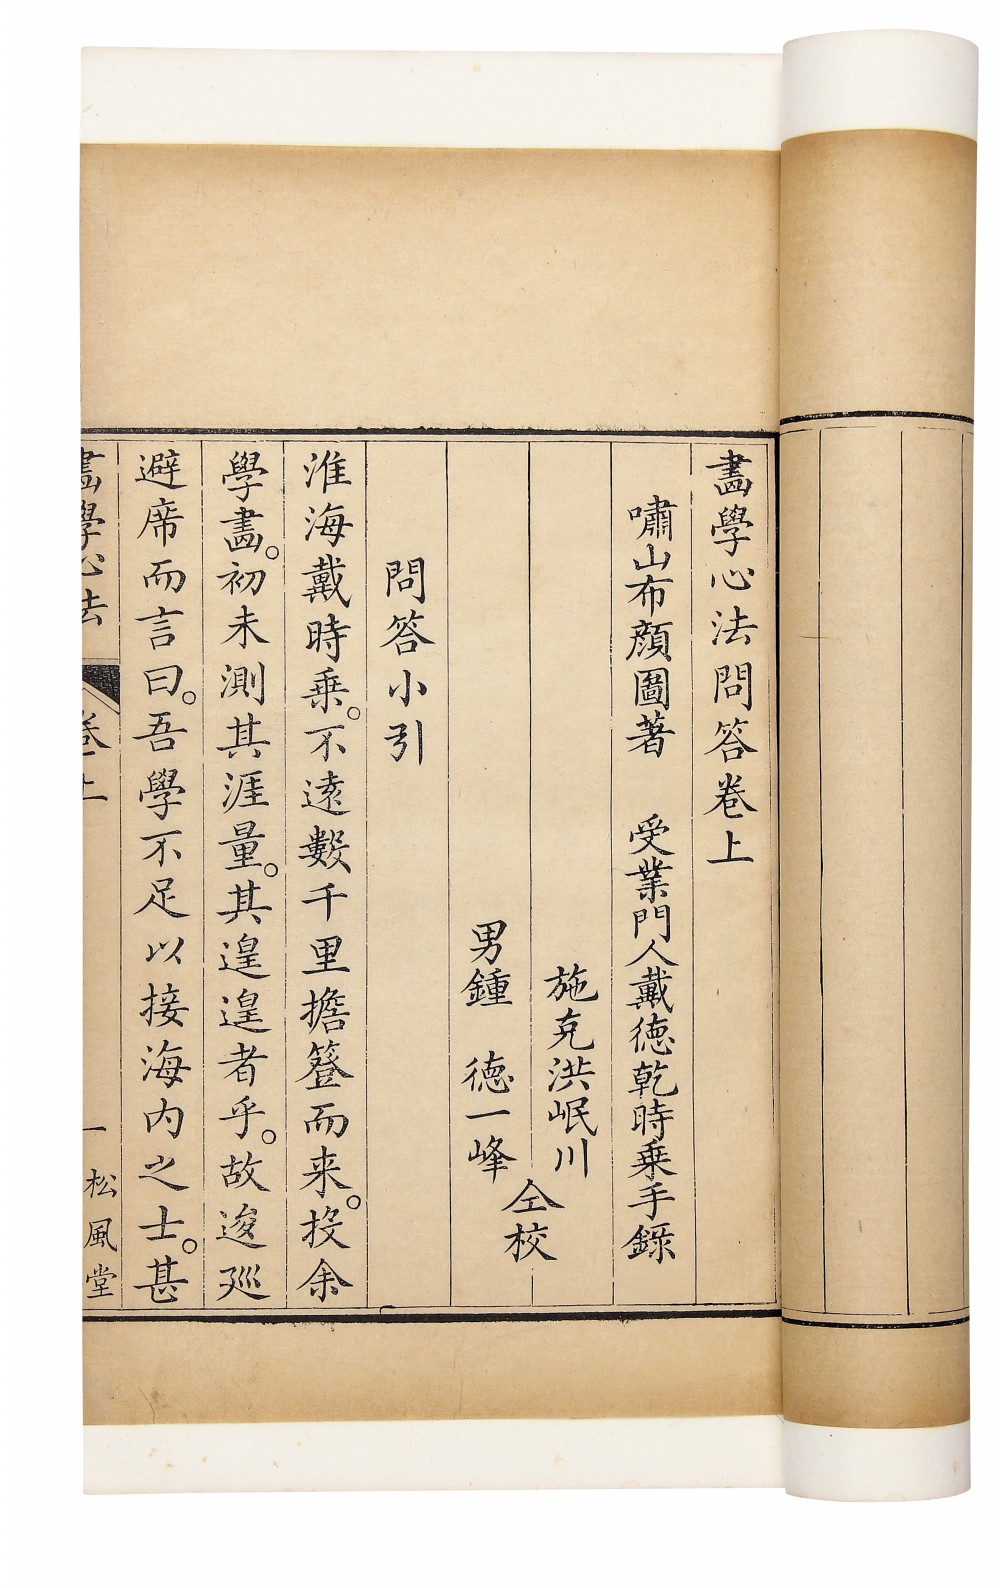 畫學心法問答卷上
嘯山布顏圖著　受業門人戴德乾時乗手錄
施克洪岷川
男鍾　德一峰
仝校
問答小引
淮海戴時乗。不遠數千里擔簦而来。投余
學畫。初未測其涯量。其遑遑者乎。故逡廵
避席而言曰。吾學不足以接海内之士。甚
畫學心法
卷上
一
松風堂